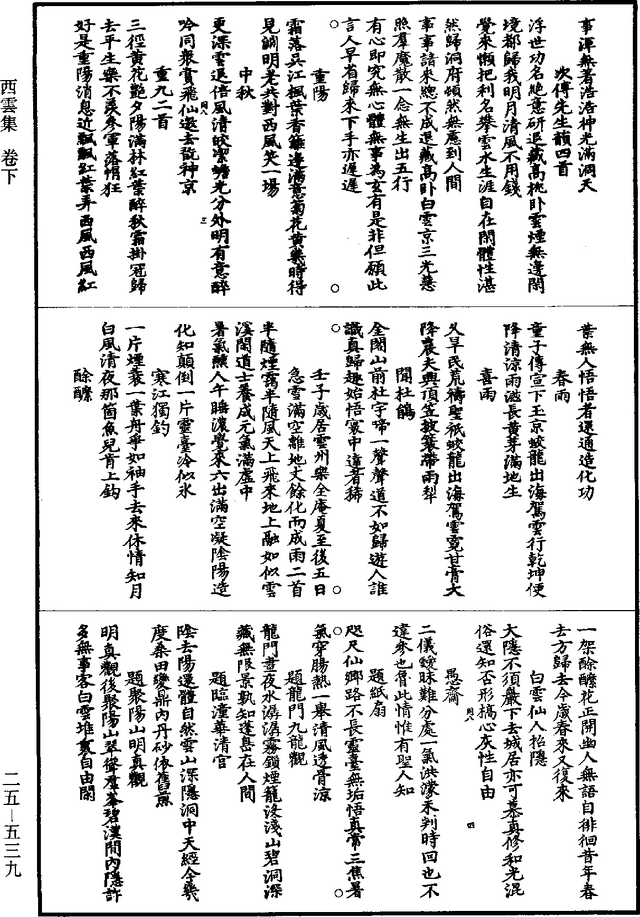 西雲集 卷下
二五—五三九
事渾無着浩浩神光滿洞天
次傅先生韻四首
浮世功名絶意研退藏高枕卧雲煙無邊閑
境都歸我明月清風不用錢
覺來懶把利名攀雲水生涯自在閑體性湛
然歸洞府頓然無慮到人間
事事諳來總不成退藏高卧白雲京三光慧
照羣魔散一念無生出五行
有心即究無心體無事為玄有是非但願此
言人早省歸來下手亦遲遲
重陽
霜落吳江楓葉香籬邊滿意菊花黄幾時得
見淵明老共對西風笑一場
中秋
更深雲退倍風清皎潔蟾光分外明有意醉
吟同衆賞飛仙邀去翫神京
重九二首
三徑黄花艷夕陽滿林紅葉醉秋霜掛冠歸
去平生樂不羨參軍落帽狂
好是重陽消息近飄飄紅葉弄西風西風紅
葉無人悟悟者還通造化功
春雨
童子傳宣下玉京蛟龍出海駕雲行乾坤便
降清凉雨滋長黄芽滿地生
喜雨
久旱民荒禱聖祇蛟龍出海駕雲霓甘膏大
降農夫興頂笠披蓑帶雨犁
聞杜鵑
金閣山前杜宇啼一聲聲道不如歸遊人誰
識真歸趣始悟寰中達者稀
壬子歲居雲州樂全庵夏至後五日
急雪滿空離地丈餘化而成雨二首
半隨煙靄半隨風天上飛來地上融如似雲
溪閑道士養成元氣滿虚中
暑氣熏人午睡濃覺來六出滿空凝陰陽造
化知顛倒一片靈臺冷似氷
寒江獨釣
一片煙蓑一葉舟爭如袖手去來休情知月
白風清夜那箇魚兒肯上鈎
酴醾
一架酴醾花正開幽人無語自徘徊昔年春
去方歸去今歲春來又復來
白雲仙人招隱
大隱不須巖下去城居亦可慕真修和光混
俗還知否形槁心灰性自由
愚齋
二儀曖昧難分處一氣洪濛未判時回也不
違參也魯此情惟有聖人知
題紙扇
咫尺仙鄉路不長靈臺無垢悟真常三焦暑
氣穿腸熱一舉清風透骨凉
題龍門九龍觀
龍門晝夜水潺潺霧鎖煙籠淺淺山碧洞深
藏無限景孰知蓬島在人間
題臨潼華清宫
陰去陽還體自然雲山深隱洞中天經今幾
度桑田變鼎内丹砂依舊煎
題聚陽山明真觀
明真觀後聚陽山翠聳羣峯碧漢間内隱許
多無事客白雲堆裏自由閑